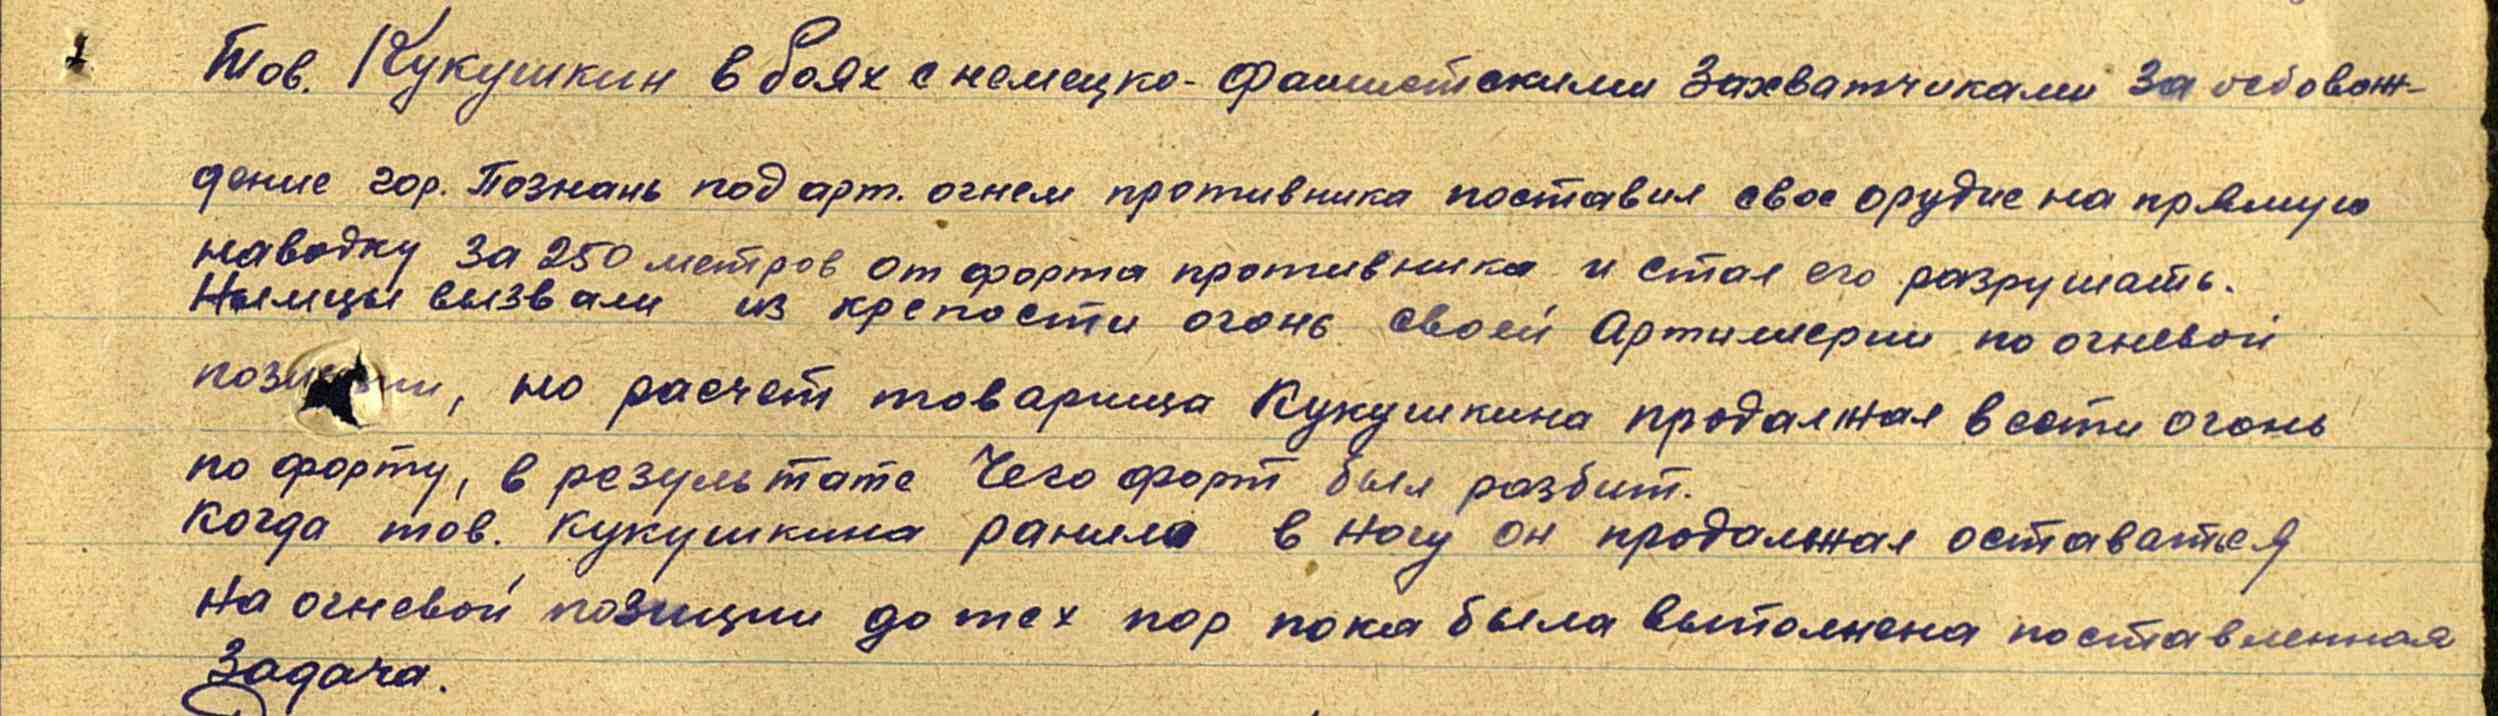 Тов. Кукушкин в боях с немецко-фашистскими захватчиками за осбовож-
дение гор. Познань под арт. огнем противника поставил свое орудие на прямую
наводку за 250 метров от форта противника и стал его разрушать.
Нымцы вызвали из крепости огонь своей Артиллерии по огневой
позиции, но расчет товарища Кукушкина продалжал вести огонь
по форту, в результате чего форт был разбит.
Когда тов. Кукушкина ранило в ногу он продалжал оставаться
на огневой позиции до тех пор пока была выполнена поставленная
задача.